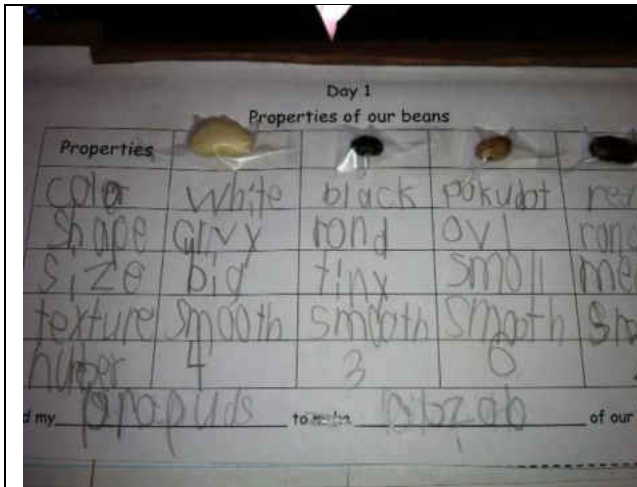 Day 1
Properties of our beans
Properties
color white black pokudot red
shape curvy rond ovl rond
size big tiny smoll me
texture smooth smooth smooth sm
number 4 3 6
d my to of our